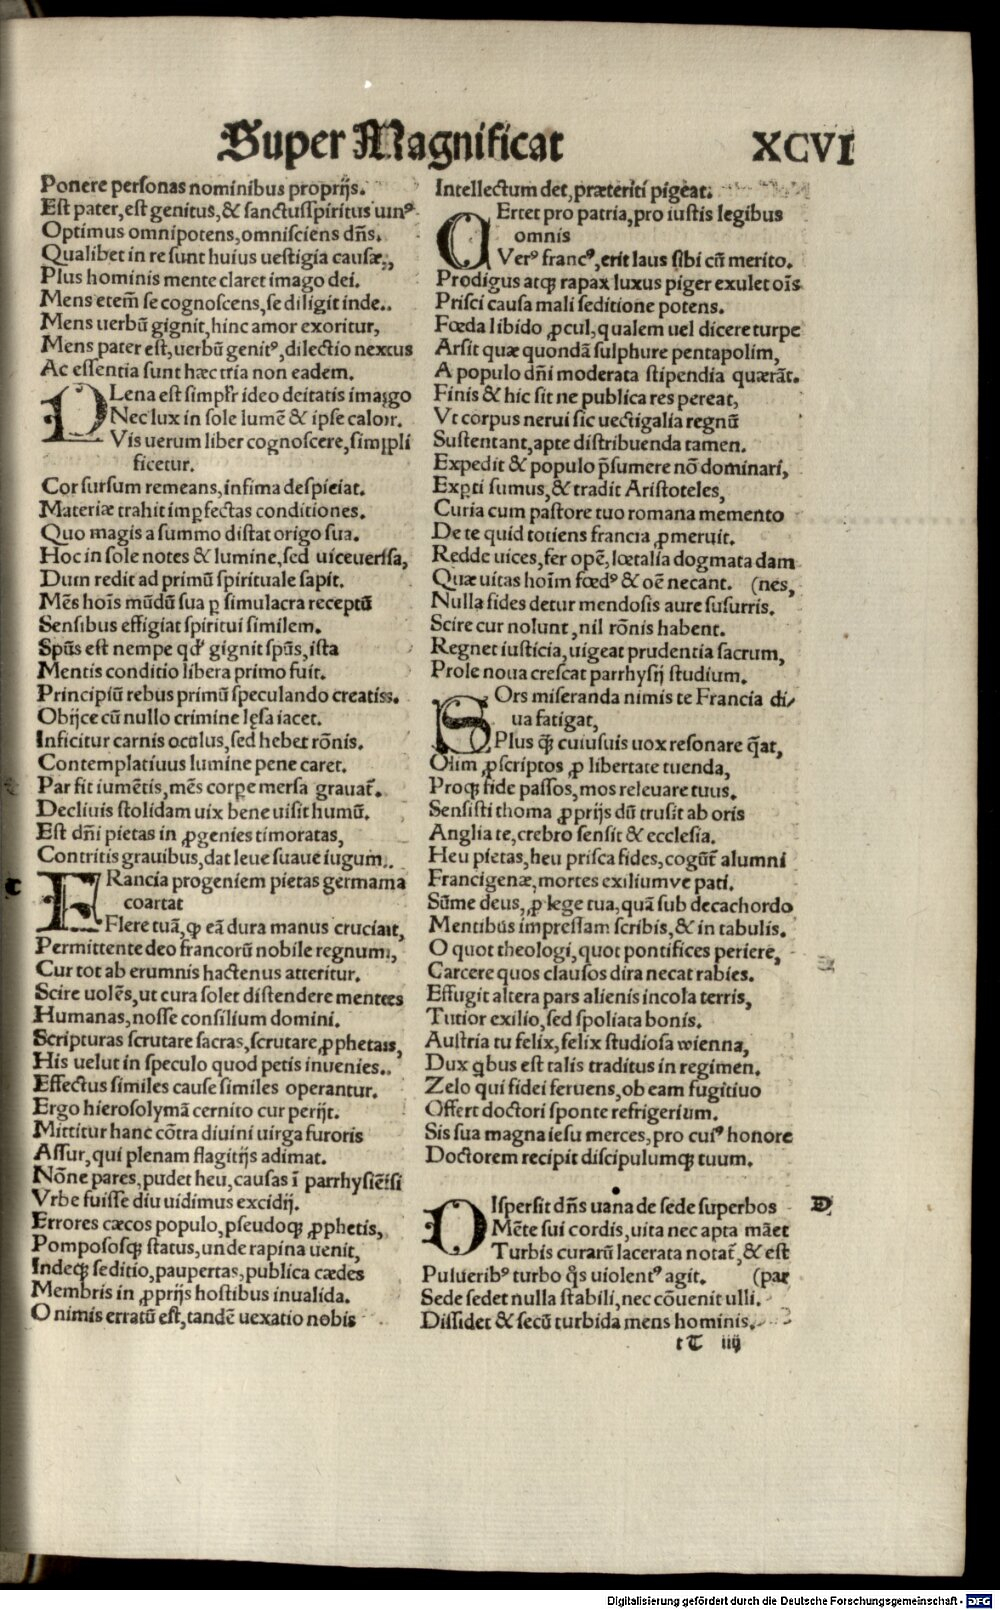 Super Magnificat XCVI
Ponere personas nominibus proprijs.
Est pater, est genitus, & sanctusspiritus vinꝰ
Optimus omnipotens, omnisciens dñs.
Qualibet in re sunt huius uestigia causæ,
Plus hominis mente claret imago dei.
Mens etem̃ se cognoscens, se diligit inde.
Mens uerbũ gignit, hinc amor exoritur,
Mens pater est, uerbũ genitꝰ, dilectio nexus
Ac essentia sunt hæc tria non eadem.
PLena est simpľr ideo deitatis imago
Nec lux in sole lumẽ & ipse calor.
Vis uerum liber cognoscere, simpli
ficetur.
Cor sursum remeans, infima despiciat.
Materiæ trahit imꝑfectas conditiones.
Quo magis a summo distat origo sua.
Hoc in sole notes & lumine, sed uiceuersa,
Dum redit ad primũ spirituale sapit.
Mẽs hoĩs mũdũ sua ꝑ simulacra receptũ
Sensibus effigiat spiritui similem.
Spũs est nempe qđ gignit spũs, ista
Mentis conditio libera primo fuit.
Principiũ rebus primũ speculando creatis.
Obijce cũ nullo crimine lęsa iacet.
Inficitur carnis oculus, sed hebet rõnis.
Contemplatiuus lumine pene caret.
Par fit iumẽtis, mẽs corꝑe mersa grauat᷑.
Decliuis stolidam uix bene uisit humũ.
Est dñi pietas in ꝓgenies timoratas,
Contritis grauibus, dat leue suaue iugum.
FRancia progeniem pietas germama
coartat
Flere tuã, ꝙ eã dura manus cruciat,
Permittente deo francorũ nobile regnum,
Cur tot ab erumnis hactenus atteritur.
Scire uolẽs, ut cura solet distendere mentes
Humanas, nosse consilium domini.
Scripturas scrutare sacras, scrutare ꝓphetas,
His uelut in speculo quod petis inuenies.
Effectus similes cause similes operantur.
Ergo hierosolymã cernito cur perijt.
Mittitur hanc cõtra diuini uirga furoris
Assur, qui plenam flagitijs adimat.
Nõne pares, pudet heu, causas ĩ parrhysiẽsi
Vrbe fuisse diu uidimus excidij.
Errores cæcos populo, pseudoqꝫ ꝓphetis,
Pompososqꝫ status, unde rapina uenit,
Indeqꝫ seditio, paupertas, publica cædes
Membris in ꝓprijs hostibus inualida.
O nimis erratũ est, tandẽ uexatio nobis
Intellectum det, præteriti pigeat.
CErtet pro patria, pro iustis legibus
omnis
Verꝰ francꝰ, erit laus sibi cũ merito.
Prodigus atqꝫ rapax luxus piger exulet oĩs
Prisci causa mali seditione potens.
Fœda libido ꝓcul, qualem uel dicere turpe
Arsit quæ quondã sulphure pentapolim,
A populo dñi moderata stipendia quærãt.
Finis & hic sit ne publica res pereat,
Vt corpus nerui sic uectigalia regnũ
Sustentant, apte distribuenda tamen.
Expedit & populo p̃sumere nõ dominari,
Exꝑti sumus, & tradit Aristoteles,
Curia cum pastore tuo romana memento
De te quid totiens francia ꝓmeruit.
Redde uices, fer opẽ, lœtalia dogmata dam
Quæ uitas hoĩm fœdꝰ & oẽ necant. (nes,
Nulla fides detur mendosis aure susurris.
Scire cur nolunt, nil rõnis habent.
Regnet iusticia, uigeat prudentia sacrum,
Prole noua crescat parrhysij studium.
SOrs miseranda nimis te Francia di⸗
ua fatigat,
Plus q̃ꝫ cuiusuis uox resonare q̃at,
Olim ꝓscriptos ꝓ libertate tuenda,
Proqꝫ fide passos, mos releuare tuus.
Sensisti thoma ꝓprijs dũ trusit ab oris
Anglia te, crebro sensit & ecclesia.
Heu pietas, heu prisca fides, cogũt᷑ alumni
Francigenæ, mortes exiliumve pati.
Sũme deus, ꝓ lege tua, quã sub decachordo
Mentibus impressam scribis, & in tabulis.
O quot theologi, quot pontifices periere,
Carcere quos clausos dira necat rabies.
Effugit altera pars alienis incola terris,
Tutior exilio, sed spoliata bonis.
Austria tu felix, felix studiosa wienna,
Dux q̇bus est talis traditus in regimen.
Zelo qui fidei feruens, ob eam fugitiuo
Offert doctori sponte refrigerium.
Sis sua magna iesu merces, pro cuiꝰ honore
Doctorem recipit discipulumqꝫ tuum.
DIspersit dñs uana de sede superbos D
Mẽte sui cordis, uita nec apta mãet
Turbis curarũ lacerata notat᷑, & est
Pulueribꝰ turbo q̊s uiolentꝰ agit. (par
Sede sedet nulla stabili, nec cõuenit ulli.
Dissidet & secũ turbida mens hominis.
t T iiij
Digitalisierung gefördert durch die Deutsche Forschungsgemeinschaft - DFG